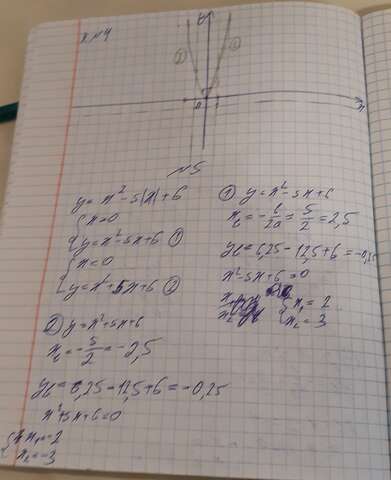 y
②
①
0
1
x
№5
y = x² - 5|x| + 6
{ x ≥ 0
{ y = x² - 5x + 6 ①
{ x < 0
{ y = x² + 5x + 6 ②
① y = x² - 5x + 6
x₆ = -b/2a = 5/2 = 2,5
y₆ = 6,25 - 12,5 + 6 = -0,25
x² - 5x + 6 = 0
{ x₁ = 2
{ x₂ = 3
② y = x² + 5x + 6
x₆ = -5/2 = -2,5
y₆ = 6,25 - 12,5 + 6 = -0,25
x² + 5x + 6 = 0
{ x₁ = -2
x₂ = -3